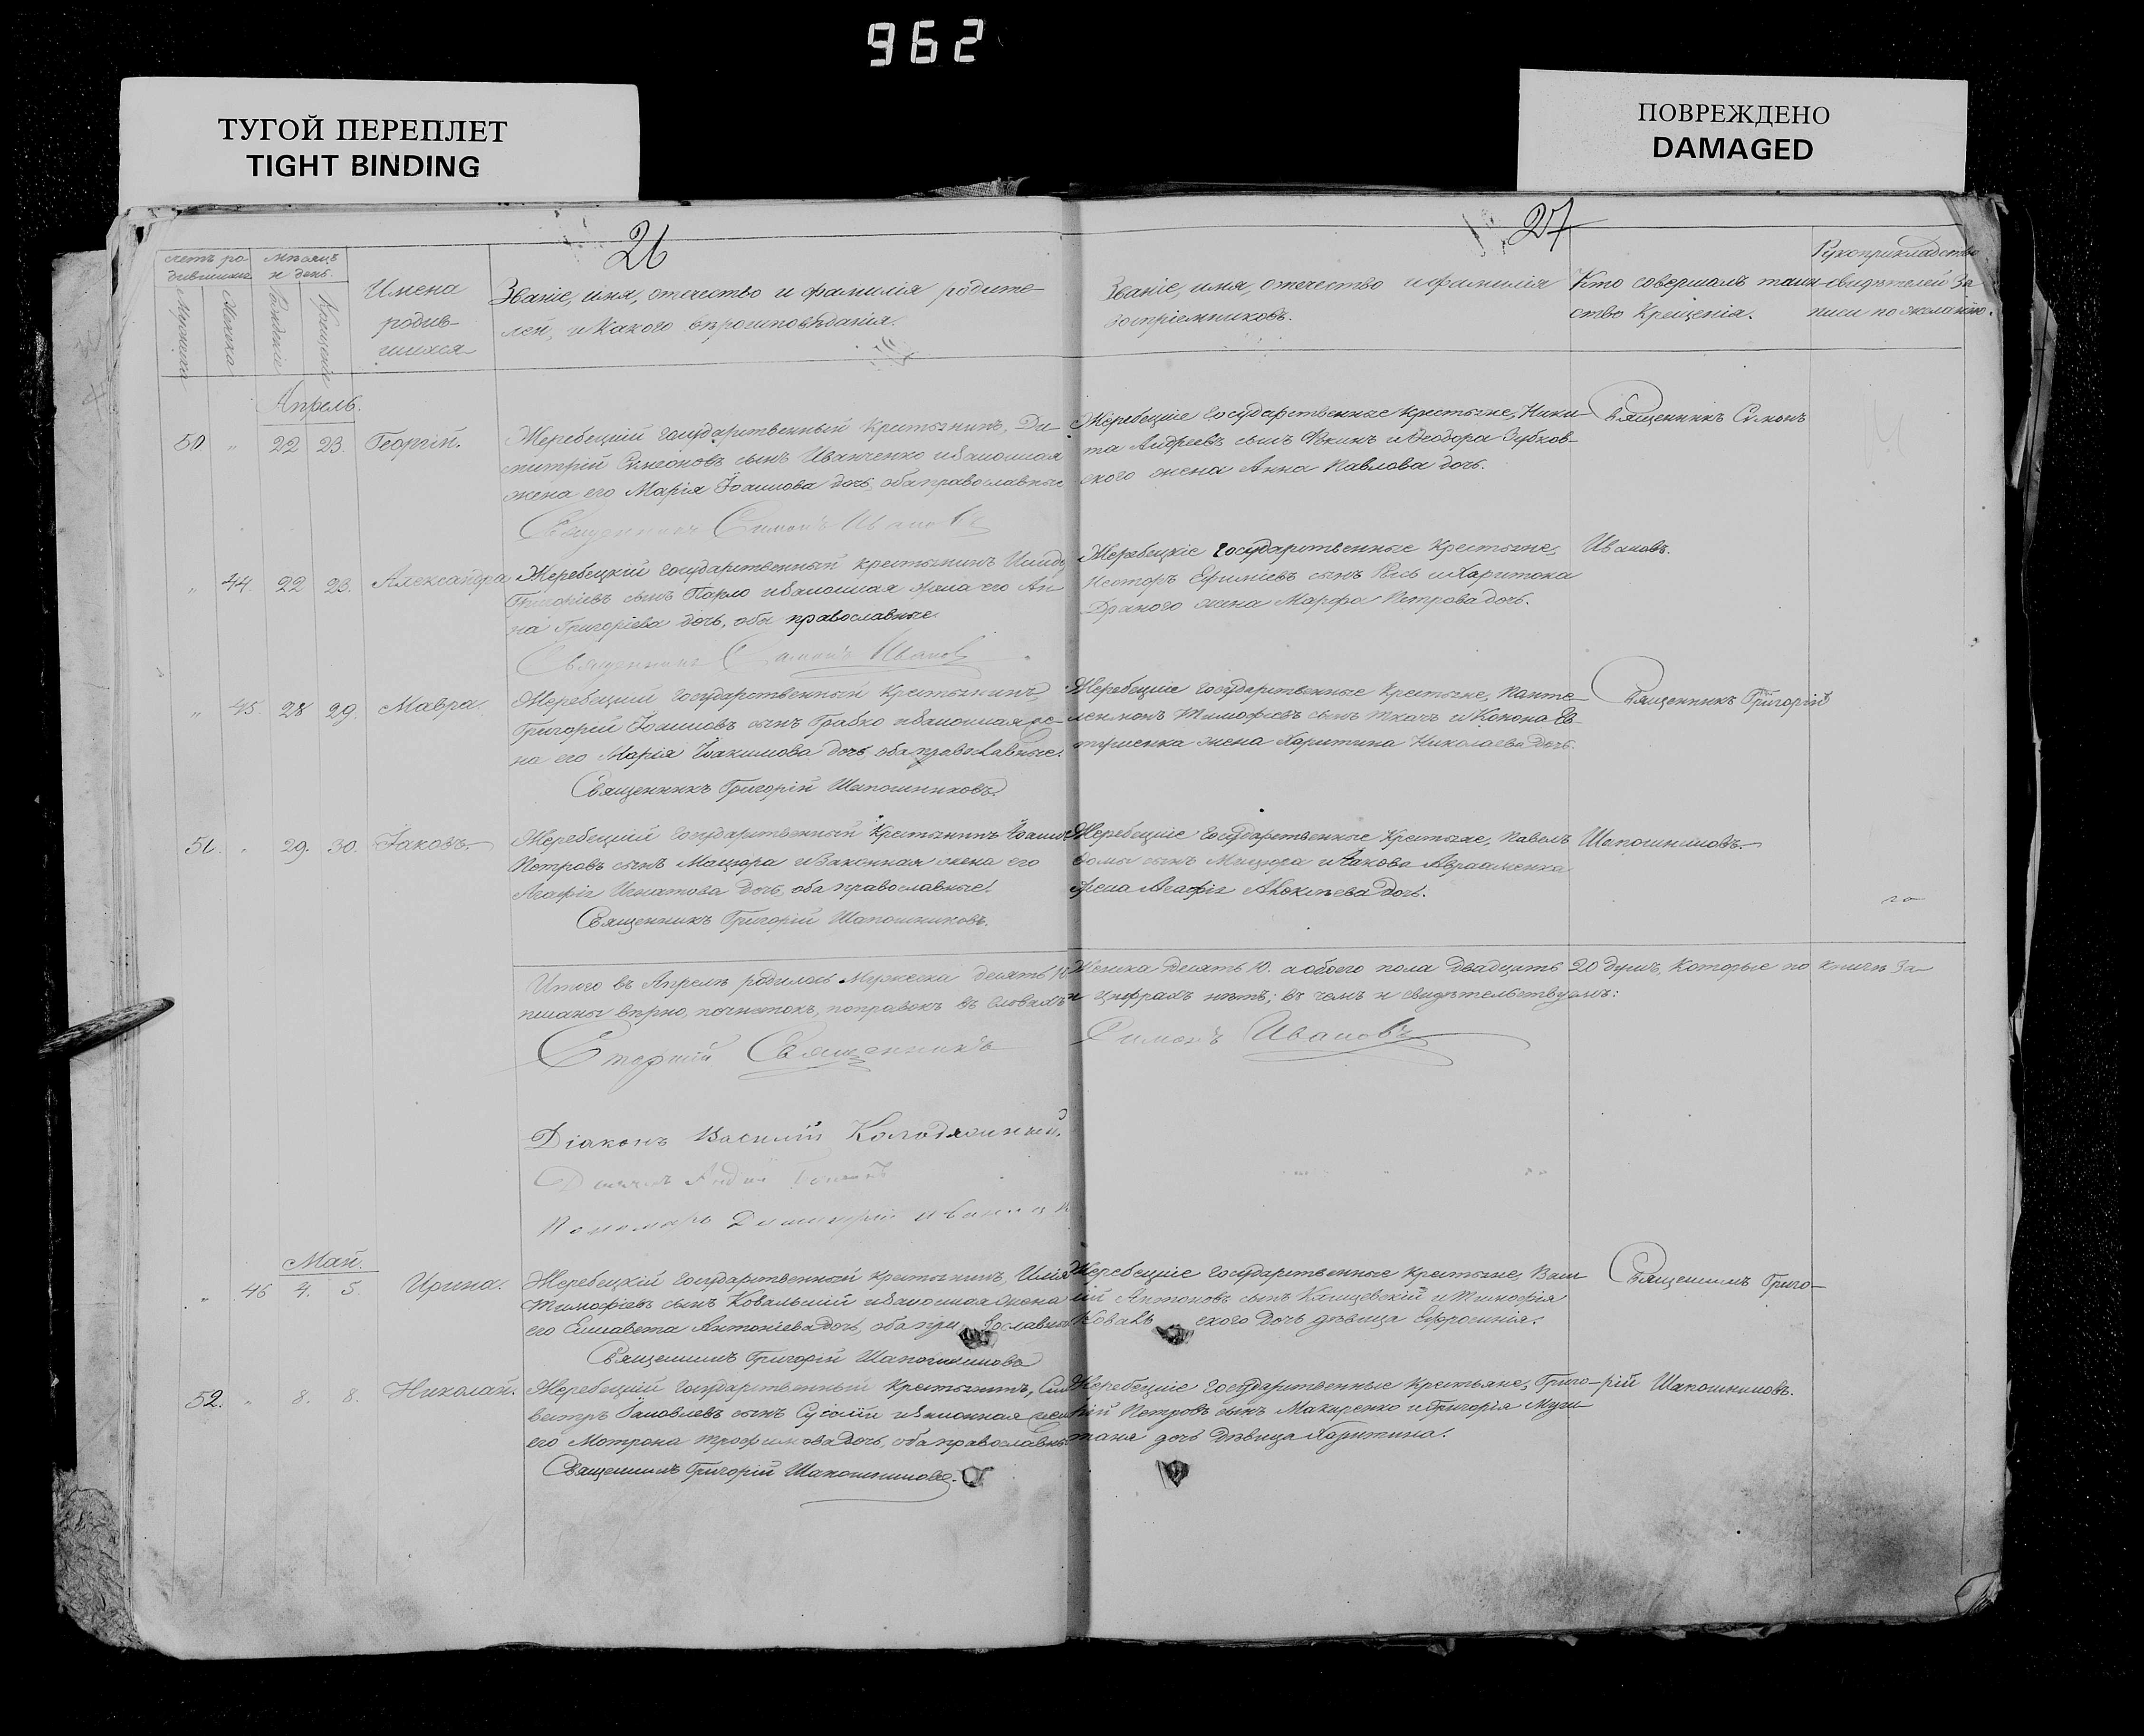 962
ТУГОЙ ПЕРЕПЛЕТ
TIGHT BINDING
ПОВРЕЖДЕНО
DAMAGED
26
27
Счетъ ро-
дившихся
Мужеска
Женска
Мѣсяцъ
и день.
Рожденіе
Крещеніе
Имена
родив-
шихся
Званіе, имя, отечество и фамилія родите-
лей, и какого вѣроисповѣданія.
Званіе, имя, отечество и фамилія
воспріемниковъ.
Кто совершалъ таин-
ство Крещенія.
Рукоприкладство
свидѣтелей за
писи по желанію.
Апрель.
50. " 22 23. Георгій.
Жеребецкій государственный крестьянинъ, Ди-
митрій Симеоновъ сынъ Иванченко и законная
жена его Марія Іоаннова дочь, оба православные
Священникъ Симонъ Ивановъ
Жеребецкіе государственные крестьяне, Ники-
та Андреевъ сынъ и Ѳеодора Зубков-
скаго жена Анна Павлова дочь.
Священникъ Симонъ
" 44. 22 23. Александра
Жеребецкій государственный крестьянинъ
Григоріевъ сынъ и законная жена его Ан-
на Григоріева дочь, оба православные.
Священникъ Симонъ Ивановъ
Жеребецкіе государственные крестьяне,
Несторъ Ефиміевъ сынъ и Харитона
Дранаго жена Марфа Петрова дочь.
Ивановъ.
" 45. 28 29. Мавра.
Жеребецкій государственный крестьянинъ,
Григорій Іоанновъ сынъ Грабко и законная же-
на его Марія Іоакимова дочь, оба православные.
Священникъ Григорій Шапошниковъ.
Жеребецкіе государственные крестьяне, Панте-
леимонъ Тимофеевъ сынъ Ткачъ и Конона
жена Харитина Николаева дочь.
Священникъ Григорій
51. " 29. 30. Іаковъ.
Жеребецкій государственный крестьянинъ
Петровъ сынъ Мацюра и законная жена его
Агафія Игнатова дочь, оба православные.
Священникъ Григорій Шапошниковъ.
Жеребецкіе государственные крестьяне, Павелъ
сынъ Мацюра и Іакова Авраменка
жена Агафія дочь.
Шапошниковъ.
Итого въ Апрелѣ родилось Мужеска десять 10 Женска десять 10. а обоего пола двадцать 20 душъ, которые по книгѣ за-
писаны вѣрно, почистокъ, поправокъ въ словахъ и цифрахъ нѣтъ; въ чемъ и свидѣтельствуемъ:
Старшій Священникъ Симонъ Ивановъ
Діаконъ Василій
Пономарь Димитрій
Май.
" 46 4. 5. Ирина.
Жеребецкій государственный крестьянинъ, Илія
Тимофіевъ сынъ Ковальскій и законная жена
его Елисавета Антоніева дочь, оба православные
Священникъ Григорій Шапошниковъ
Жеребецкіе государственные крестьяне, Васи-
лій Антоновъ сынъ и Тимофія
Ковальскаго дочь дѣвица Ефросинія.
Священникъ Григо-
52. " 8. 8. Николай.
Жеребецкій государственный крестьянинъ,
Іаковлевъ сынъ и законная жена
его Мотрона Трофимова дочь, оба православные
Священникъ Григорій Шапошниковъ.
Жеребецкіе государственные крестьяне, Григо-
рій Петровъ сынъ Макаренко и Григорія
дочь дѣвица Харитина.
рій Шапошниковъ.